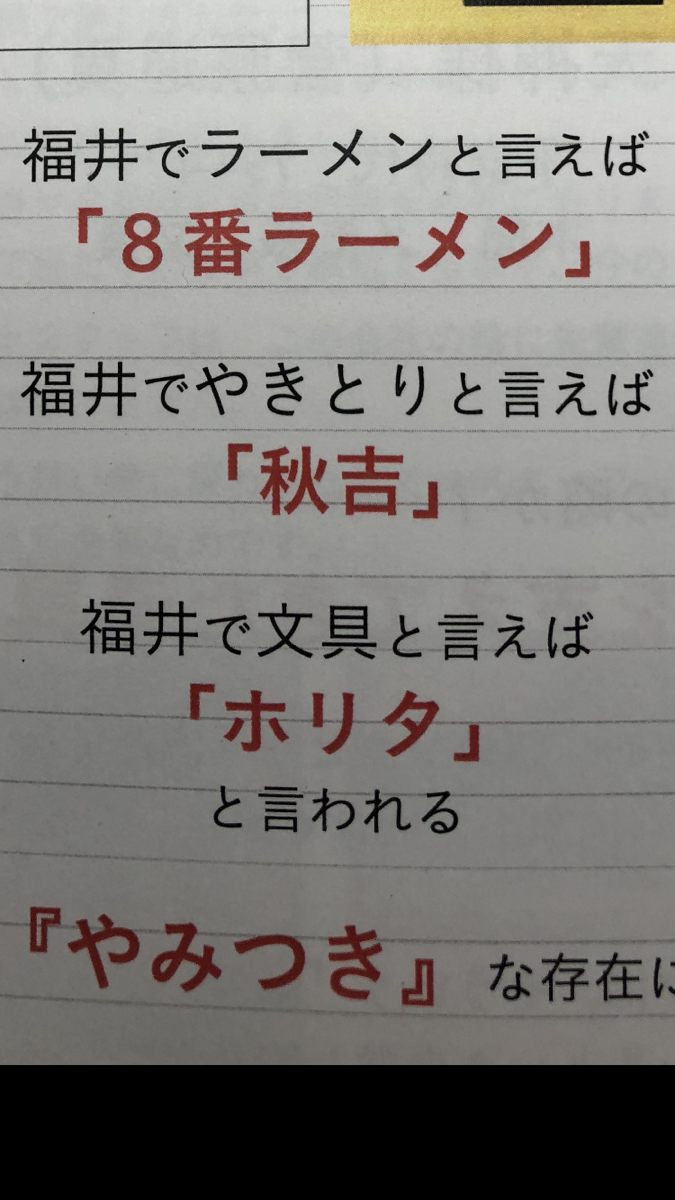 福井でラーメンと言えば
「８番ラーメン」
福井でやきとりと言えば
「秋吉」
福井で文具と言えば
「ホリタ」
と言われる
『やみつき』な存在に